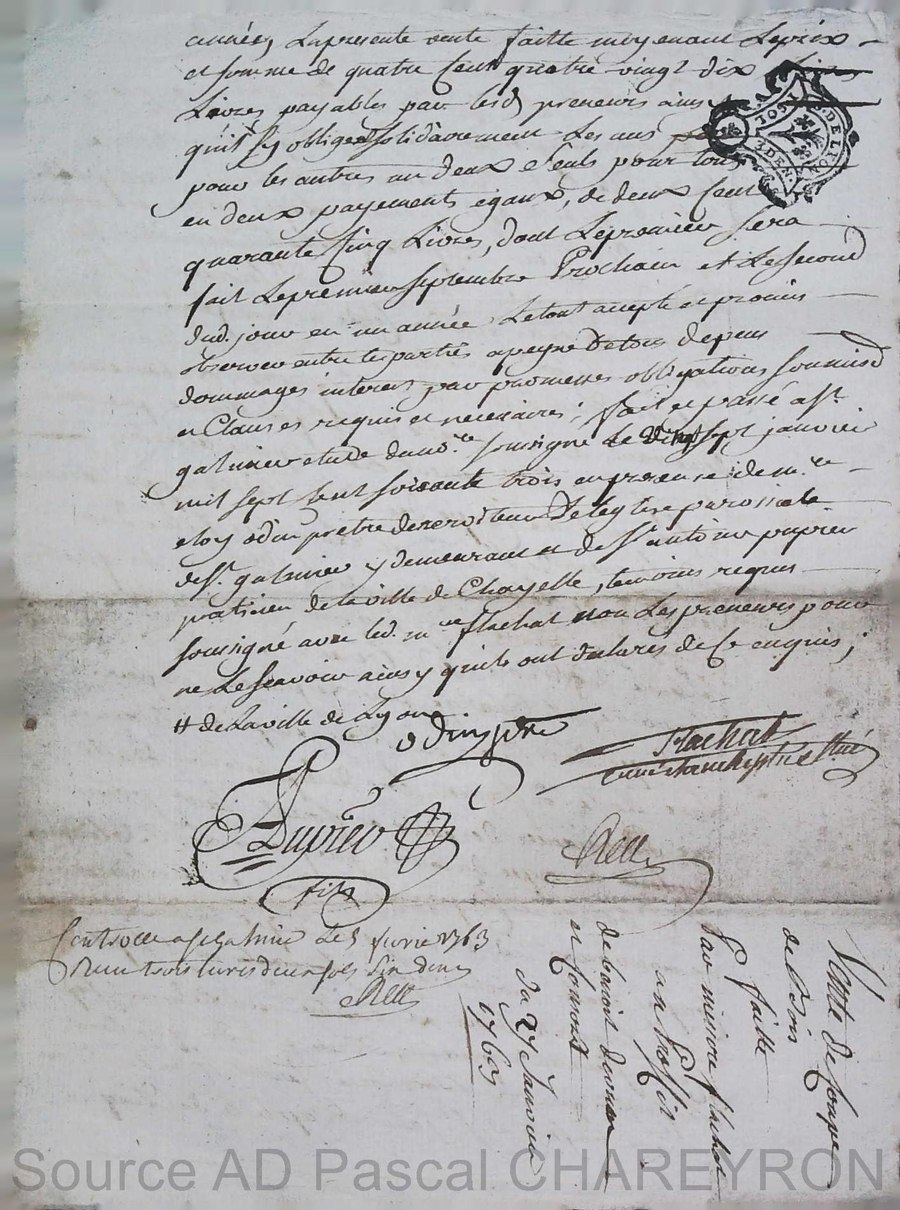 années, La presente vente faitte moyenant Le prix
et somme de quatre Cent quatre vingt dix
Livres payables par lesd preneurs ainsy
quil sy obligent solidairement Les uns
pour les autres un deux et seuls pour tous
en deux payements egaux, de deux Cent
quarante Cinq Livres, dont Le premier sera
fait Le premier septembre Prochain et Le second
dud. jour en un année, Le tout accepté et promis
observer entre les parties a peyne de tous depens
dommages interets par promesses obligations soumis
et Clauses requis et necessaires; fait et passé a St.
galmier etude du no.re soussigné Le vingt sept janvier
mil sept Cent soixante trois en presence de m.re
eloy odin pretre desserviteur de Leglise paroissiale
de St. galmier y demeurant et de Sr antoine dupreu
praticien de la ville de Chazelle, temoins requis
soussigné avec led. m.re flachat non Les preneurs pour
ne Le scavoir ainsy quils ont declarés de Ce enquis;
# de La ville de Lyon
odin ptre
Flachat
Dupreu
fils
Rell
Controllé a St Galmier Le 5 fevrier 1763
Reçu trois livres
Rell
Vente de Coupe
de bois
faitte
Par messire flachat
au Proffit
de benoit
et Consort
du 27 Janvier
1763
1 SOL
3 DEN.
G. DE LYON
Source AD Pascal CHAREYRON